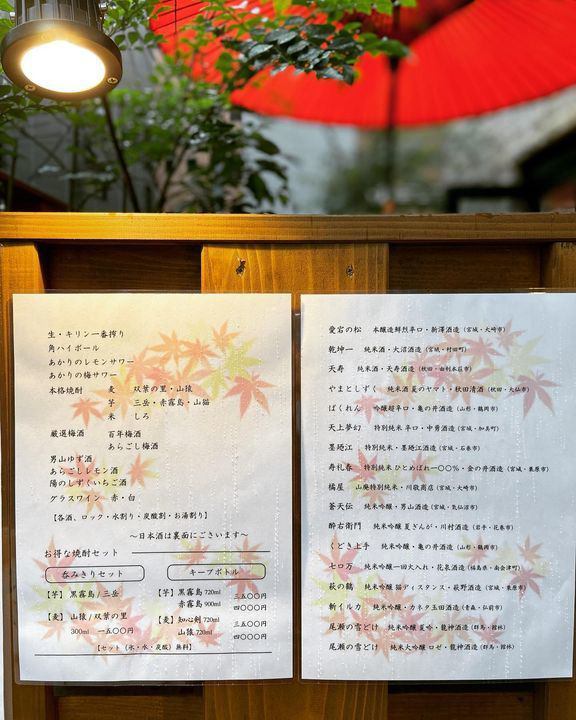 生・キリン一番搾り
角ハイボール
あかりのレモンサワー
あかりの梅サワー
本格焼酎 麦 双葉の里・山猿
芋 三岳・赤霧島・山猫
米 しろ
厳選梅酒 百年梅酒
あらごし梅酒
男山ゆず酒
あらごしレモン酒
陽のしずくいちご酒
グラスワイン 赤・白
【各酒、ロック・水割り・炭酸割・お湯割り】
〜日本酒は裏面にございます〜
お得な焼酎セット
呑みきりセット
【芋】黒霧島/三岳
【麦】山猿/双葉の里
300ml 一五〇〇円
キープボトル
【芋】黒霧島 720ml 三五〇〇円
赤霧島 900ml 四〇〇〇円
【麦】知心剣 720ml 三五〇〇円
山猿 720ml 四〇〇〇円
【セット（氷・水・炭酸）無料】
愛宕の松 本醸造鮮烈辛口・新澤酒造（宮城・大崎市）
乾坤一 純米酒・大沼酒造（宮城・村田町）
天寿 純米酒・天寿酒造（秋田・由利本荘市）
やまとしずく 純米酒 夏のヤマト・秋田清酒（秋田・大仙市）
ばくれん 吟醸超辛口・亀の井酒造（山形・鶴岡市）
天上夢幻 特別純米 辛口・中勇酒造（宮城・加美町）
墨廼江 特別純米・墨廼江酒造（宮城・石巻市）
寿礼春 特別純米 ひとめぼれ一〇〇%・金の井酒造（宮城・栗原市）
橘屋 山廃特別純米・川敬商店（宮城・大崎市）
蒼天伝 純米吟醸・男山酒造（宮城・気仙沼市）
酔右衛門 純米吟醸 夏ぎんが・川村酒造（岩手・花巻市）
くどき上手 純米吟醸・亀の井酒造（山形・鶴岡市）
七ロ万 純米吟醸一回火入れ・花泉酒造（福島県・南会津町）
萩の鶴 純米吟醸 猫ディスタンス・萩野酒造（宮城・栗原市）
斬イルカ 純米吟醸・カネタ玉田酒造（青森・弘前市）
尾瀬の雪どけ 純米吟醸 夏吟・龍神酒造（群馬・館林）
尾瀬の雪どけ 純米大吟醸 ロゼ・龍神酒造（群馬・館林）